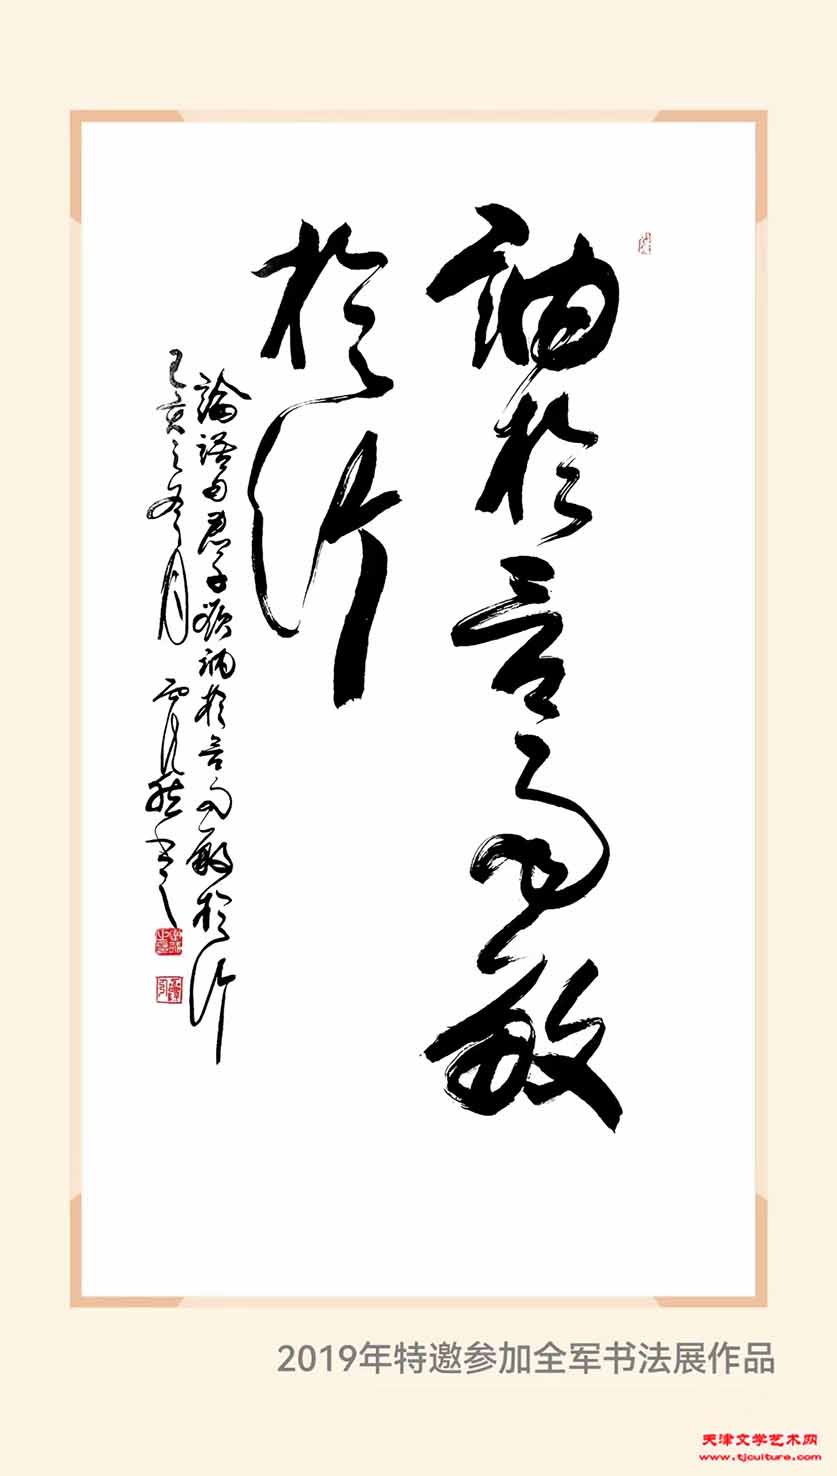 訥於言而敏
於行
論語曰君子欲訥於言而敏於行
己亥之冬月
書
2019年特邀参加全军书法展作品
天津文学艺术网
www.tjculture.com